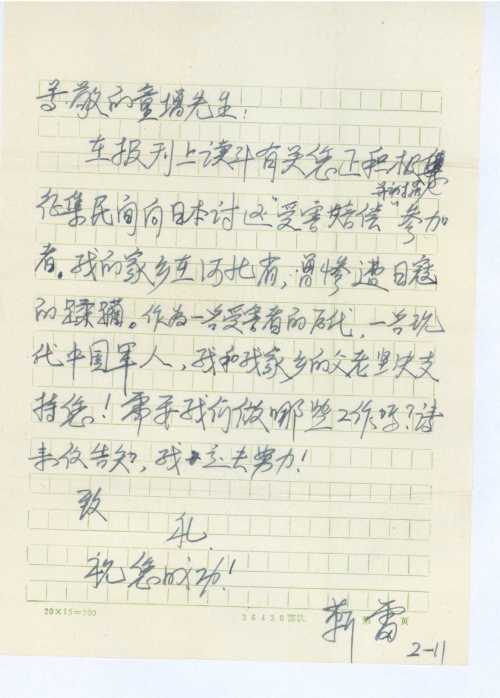 尊敬的童增先生:
在报刊上读到有关您正积极
征集民间向日本讨还"受害赔偿"参加
者。我的家乡在河北省,曾惨遭日寇
的蹂躏。作为一名受害者的后代,一名现
代中国军人,我和我家乡的父老坚决支
持您!需要我们做哪些工作吗?请
来信告知,我一定去努力!
致
礼
祝您成功!
靳雷
2-11
20×15=300
36430部队
第 页